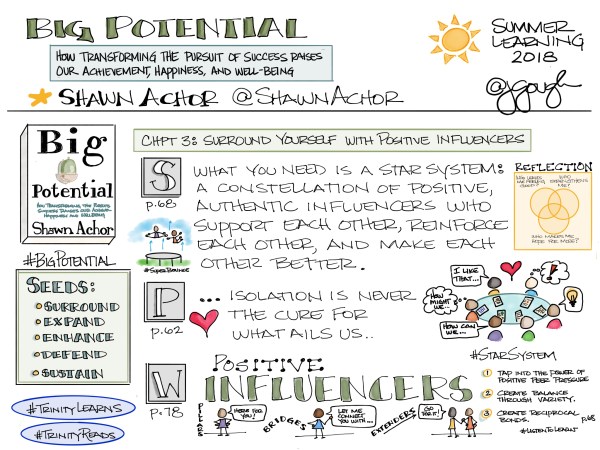 BIG POTENTIAL
HOW TRANSFORMING THE PURSUIT OF SUCCESS RAISES
OUR ACHIEVEMENT, HAPPINESS, AND WELL-BEING
SHAWN ACHOR @SHAWNACHOR
SUMMER
LEARNING
2018
@jgough
Big
Potential
HOW TRANSFORMING THE PURSUIT OF
SUCCESS RAISES OUR ACHIEVEMENT,
HAPPINESS AND WELL-BEING
Shawn Achor
#BIGPOTENTIAL
SEEDS:
SURROUND
EXPAND
ENHANCE
DEFEND
SUSTAIN
#TRINITYLEARNS
#TRINITYREADS
CHPT 3: SURROUND YOURSELF WITH POSITIVE INFLUENCERS
S
p.68
WHAT YOU NEED IS A STAR SYSTEM:
A CONSTELLATION OF POSITIVE,
AUTHENTIC INFLUENCERS WHO
SUPPORT EACH OTHER, REINFORCE
EACH OTHER, AND MAKE EACH
OTHER BETTER.
#SUPERBOUNCE
P
p.62
... ISOLATION IS NEVER
THE CURE FOR
WHAT AILS US..
W
p.78
POSITIVE
INFLUENCERS
PILLARS
HERE FOR
YOU!
BRIDGES
LET ME
CONNECT
YOU WITH...
EXTENDERS
GO
FOR IT!
REFLECTION
WHO MAKES ME
HOPE FOR MORE?
I LIKE
THAT...
HOW
MIGHT
WE...
HOW CAN
WE...
#STARSYSTEM
1 TAP INTO THE POWER OF
POSITIVE PEER PRESSURE
2 CREATE BALANCE
THROUGH VARIETY.
3 CREATE RECIPROCAL
BONDS.
p.68
#LISTENTOLEARN